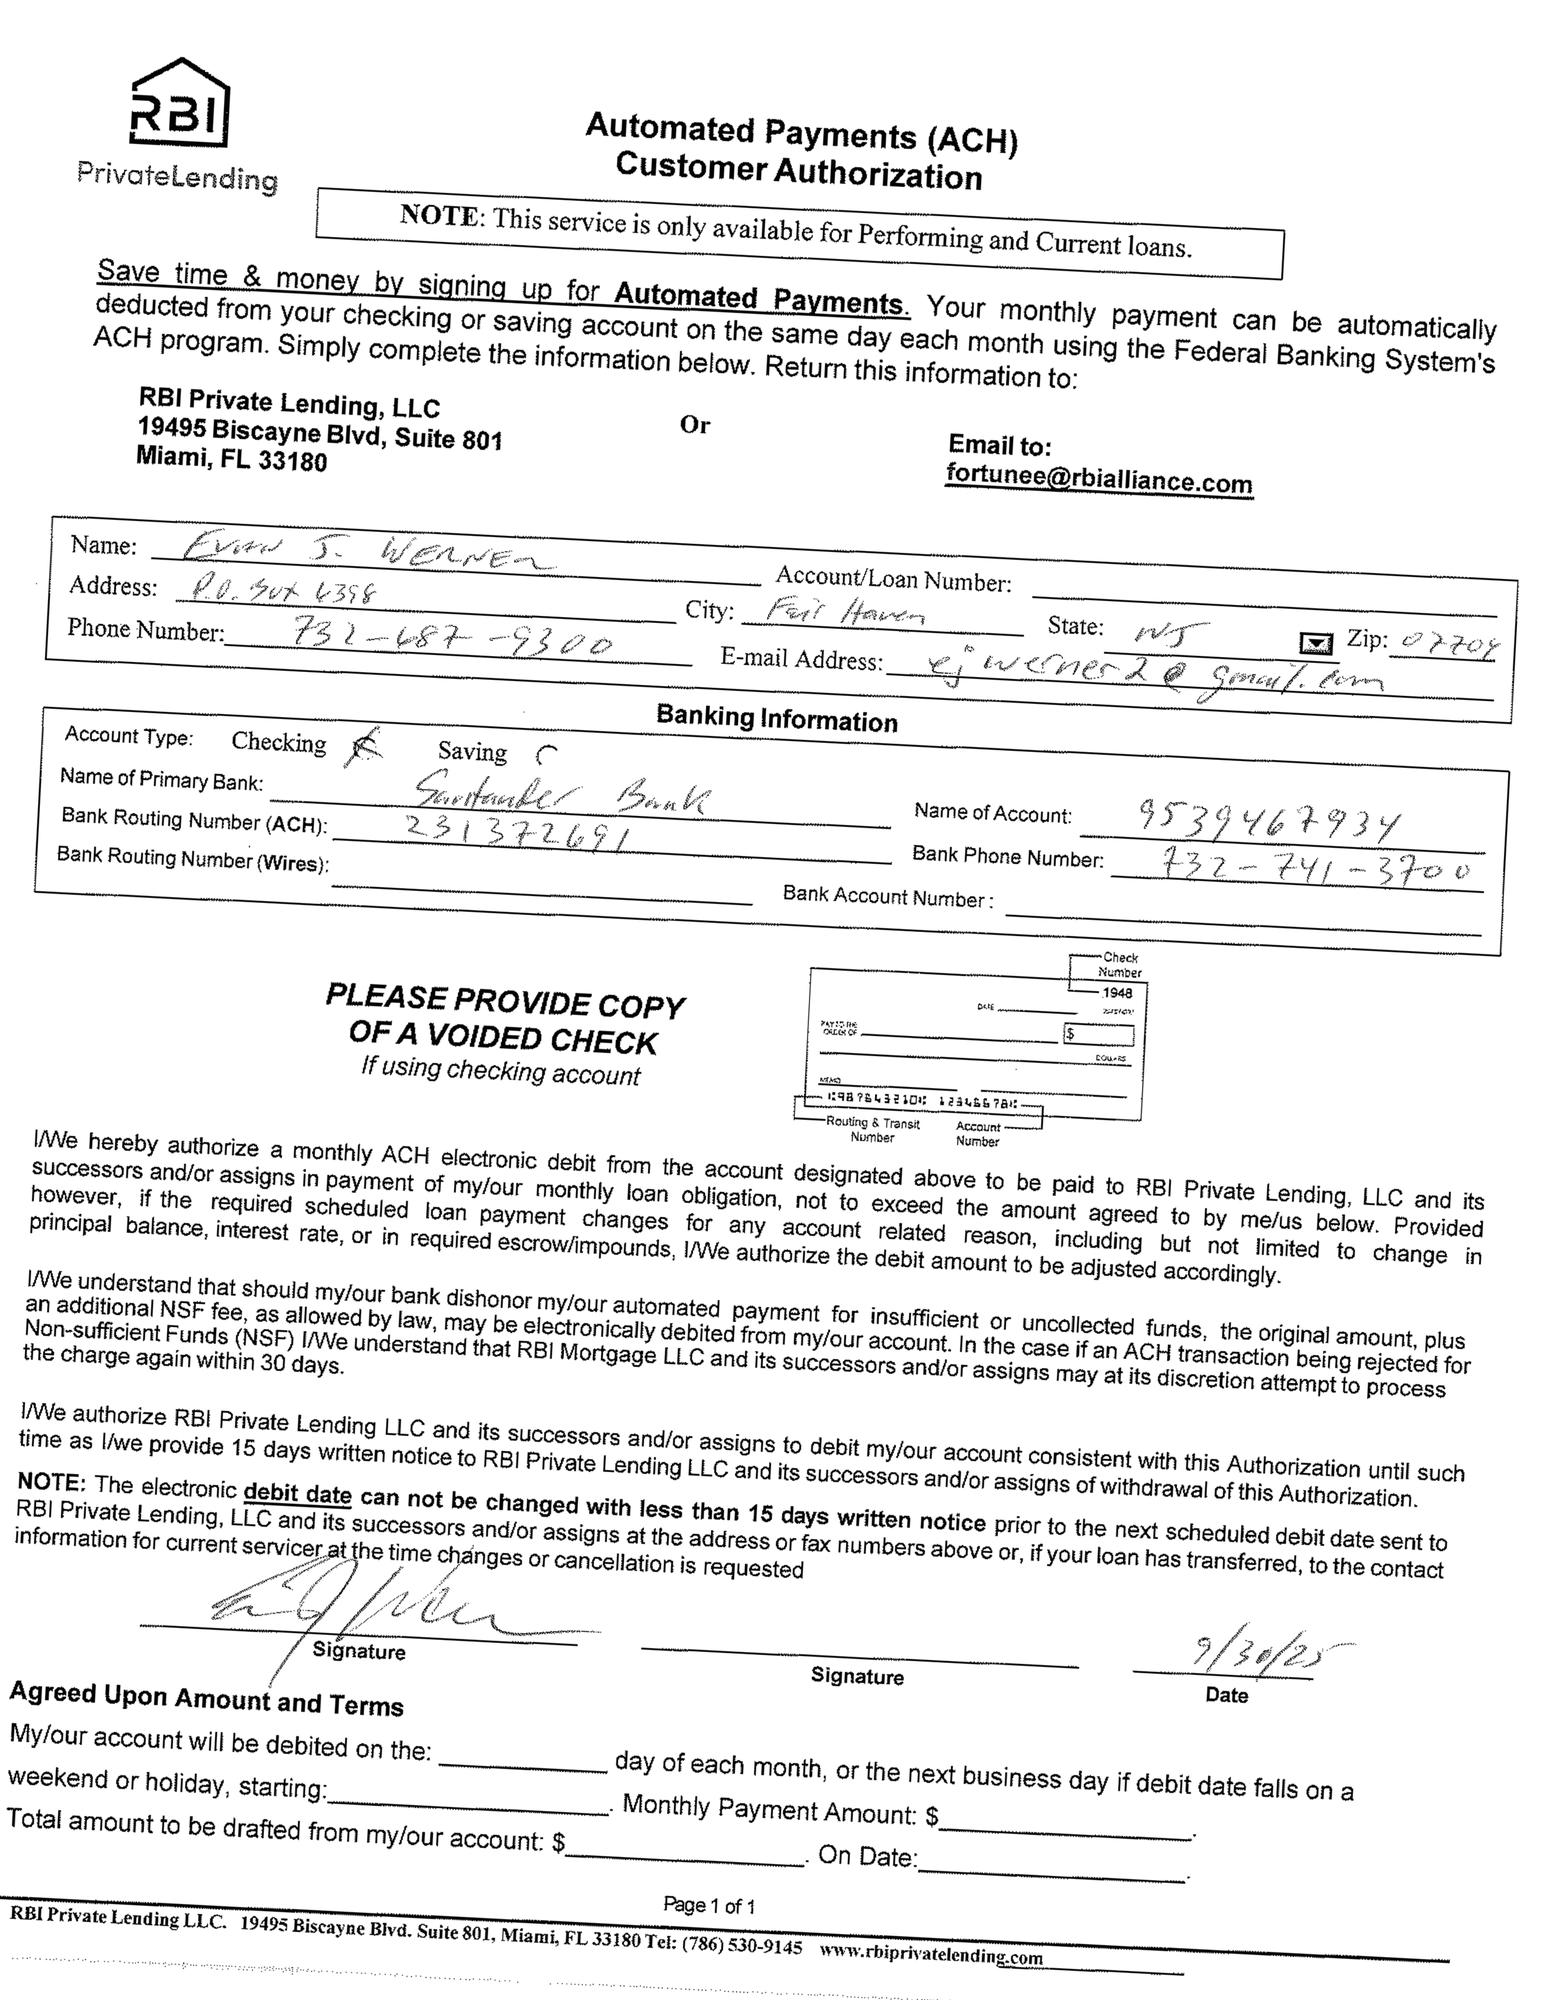 RBI
PrivateLending
Automated Payments (ACH)
Customer Authorization
NOTE: This service is only available for Performing and Current loans.
Save time & money by signing up for Automated Payments. Your monthly payment can be automatically
deducted from your checking or saving account on the same day each month using the Federal Banking System's
ACH program. Simply complete the information below. Return this information to:
RBI Private Lending, LLC
19495 Biscayne Blvd, Suite 801
Miami, FL 33180
Or
Email to:
fortunee@rbialliance.com
Name: Evan J. Werner Account/Loan Number:
Address: P.O. Box 6398 City: Fair Haven State: NJ Zip: 07704
Phone Number: 732-687-9300 E-mail Address: ejwerner2@gmail.com
Banking Information
Account Type: Checking Saving
Name of Primary Bank: Santander Bank Name of Account: 9539467934
Bank Routing Number (ACH): 231372691 Bank Phone Number: 732-741-3700
Bank Routing Number (Wires): Bank Account Number :
PLEASE PROVIDE COPY
OF A VOIDED CHECK
If using checking account
Check
Number
1948
DATE
PAY TO THE
ORDER OF
$
DOLLARS
MEMO
⑆987654321⑆ 12345678⑆
Routing & Transit
Number
Account
Number
I/We hereby authorize a monthly ACH electronic debit from the account designated above to be paid to RBI Private Lending, LLC and its
successors and/or assigns in payment of my/our monthly loan obligation, not to exceed the amount agreed to by me/us below. Provided
however, if the required scheduled loan payment changes for any account related reason, including but not limited to change in
principal balance, interest rate, or in required escrow/impounds, I/We authorize the debit amount to be adjusted accordingly.
I/We understand that should my/our bank dishonor my/our automated payment for insufficient or uncollected funds, the original amount, plus
an additional NSF fee, as allowed by law, may be electronically debited from my/our account. In the case if an ACH transaction being rejected for
Non-sufficient Funds (NSF) I/We understand that RBI Mortgage LLC and its successors and/or assigns may at its discretion attempt to process
the charge again within 30 days.
I/We authorize RBI Private Lending LLC and its successors and/or assigns to debit my/our account consistent with this Authorization until such
time as I/we provide 15 days written notice to RBI Private Lending LLC and its successors and/or assigns of withdrawal of this Authorization.
NOTE: The electronic debit date can not be changed with less than 15 days written notice prior to the next scheduled debit date sent to
RBI Private Lending, LLC and its successors and/or assigns at the address or fax numbers above or, if your loan has transferred, to the contact
information for current servicer at the time changes or cancellation is requested
9/30/25
Signature
Signature
Date
Agreed Upon Amount and Terms
My/our account will be debited on the: day of each month, or the next business day if debit date falls on a
weekend or holiday, starting: . Monthly Payment Amount: $ .
Total amount to be drafted from my/our account: $ . On Date: .
Page 1 of 1
RBI Private Lending LLC. 19495 Biscayne Blvd. Suite 801, Miami, FL 33180 Tel: (786) 530-9145 www.rbiprivatelending.com